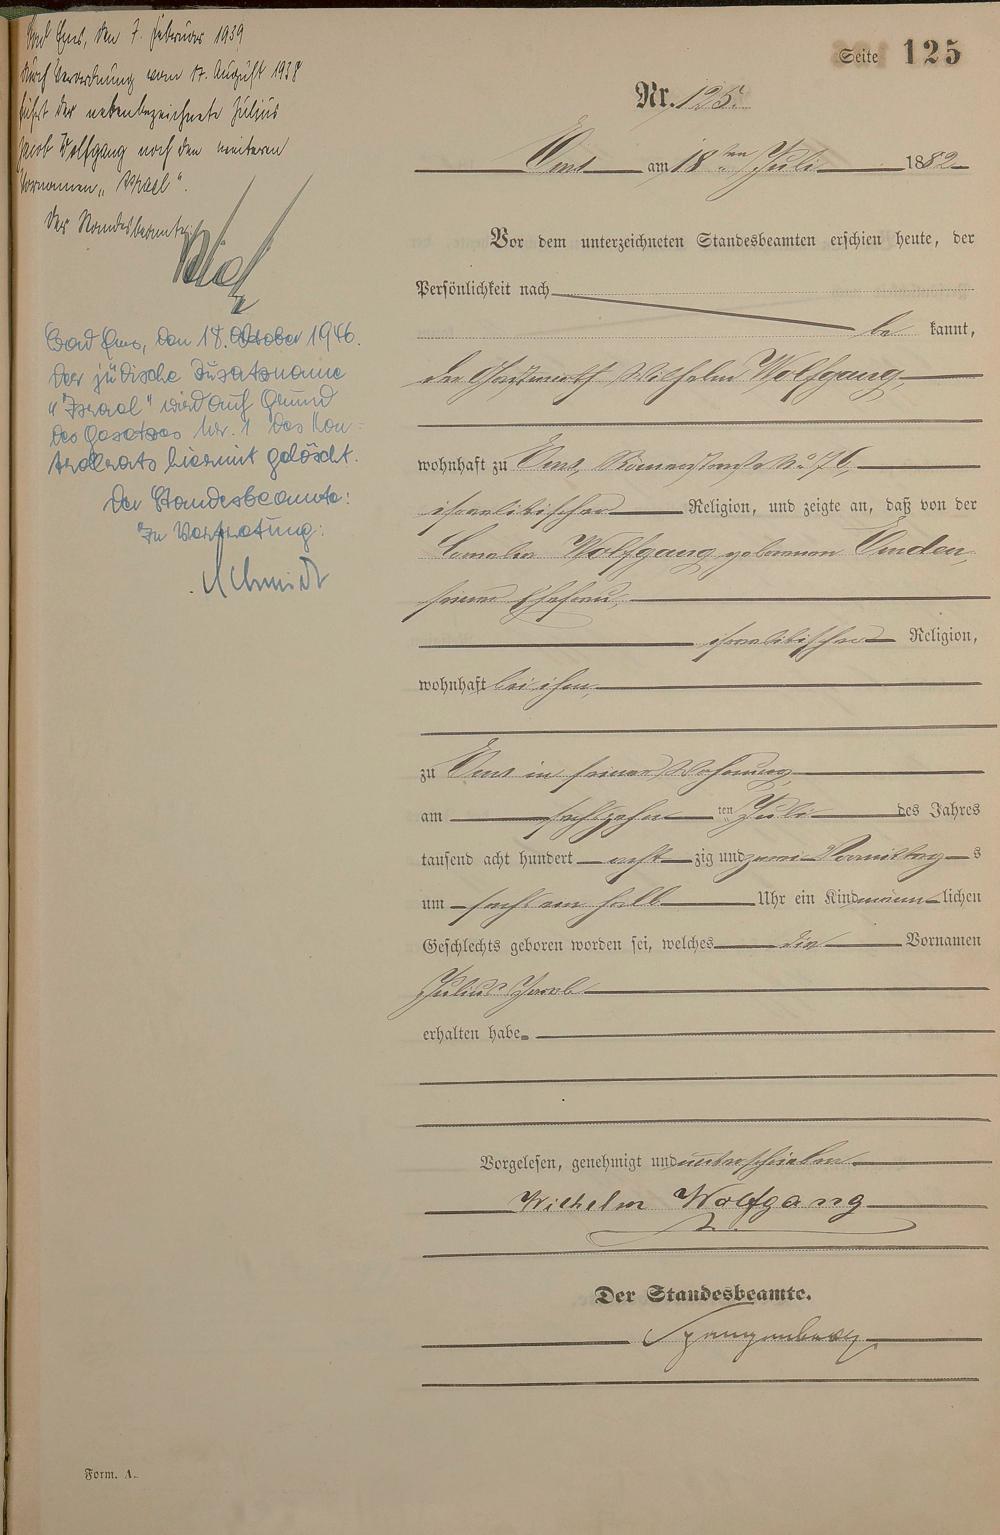 Bad Ems, den 7. Februar 1939
Durch Verordnung vom 17. August 1938
führt der nebenbezeichnete Julius
Jacob Wolfgang noch den weiteren
Vornamen „Israel“.
Der Standesbeamte:
Bad Ems, den 18. Oktober 1946.
Der jüdische Zusatzname
"Israel" wird auf Grund
des Gesetzes Nr. 1 des Kon-
trollrats hiermit gelöscht.
Der Standesbeamte:
In Vertretung:
Schmidt
Seite 125
Nr. 125.
Ems am 18 ten Juli 1882
Vor dem unterzeichneten Standesbeamten erschien heute, der
Persönlichkeit nach
be kannt,
der Gastwirth Wilhelm Wolfgang
wohnhaft zu Ems, Römerstraße No 76,
israelitischer Religion, und zeigte an, daß von der
Wolfgang geborenen Emden,
seiner Ehefrau,
israelitischer Religion,
wohnhaft bei ihm,
zu Ems in seiner Wohnung,
am sechszehn ten Juli des Jahres
tausend acht hundert acht zig und zwei Vormittag s
um sechs ein halb Uhr ein Kind männ lichen
Geschlechts geboren worden sei, welches die Vornamen
Julius Jacob
erhalten habe.
Vorgelesen, genehmigt und unterschrieben
Wilhelm Wolfgang
Der Standesbeamte.
Spangenberg
Form. A.